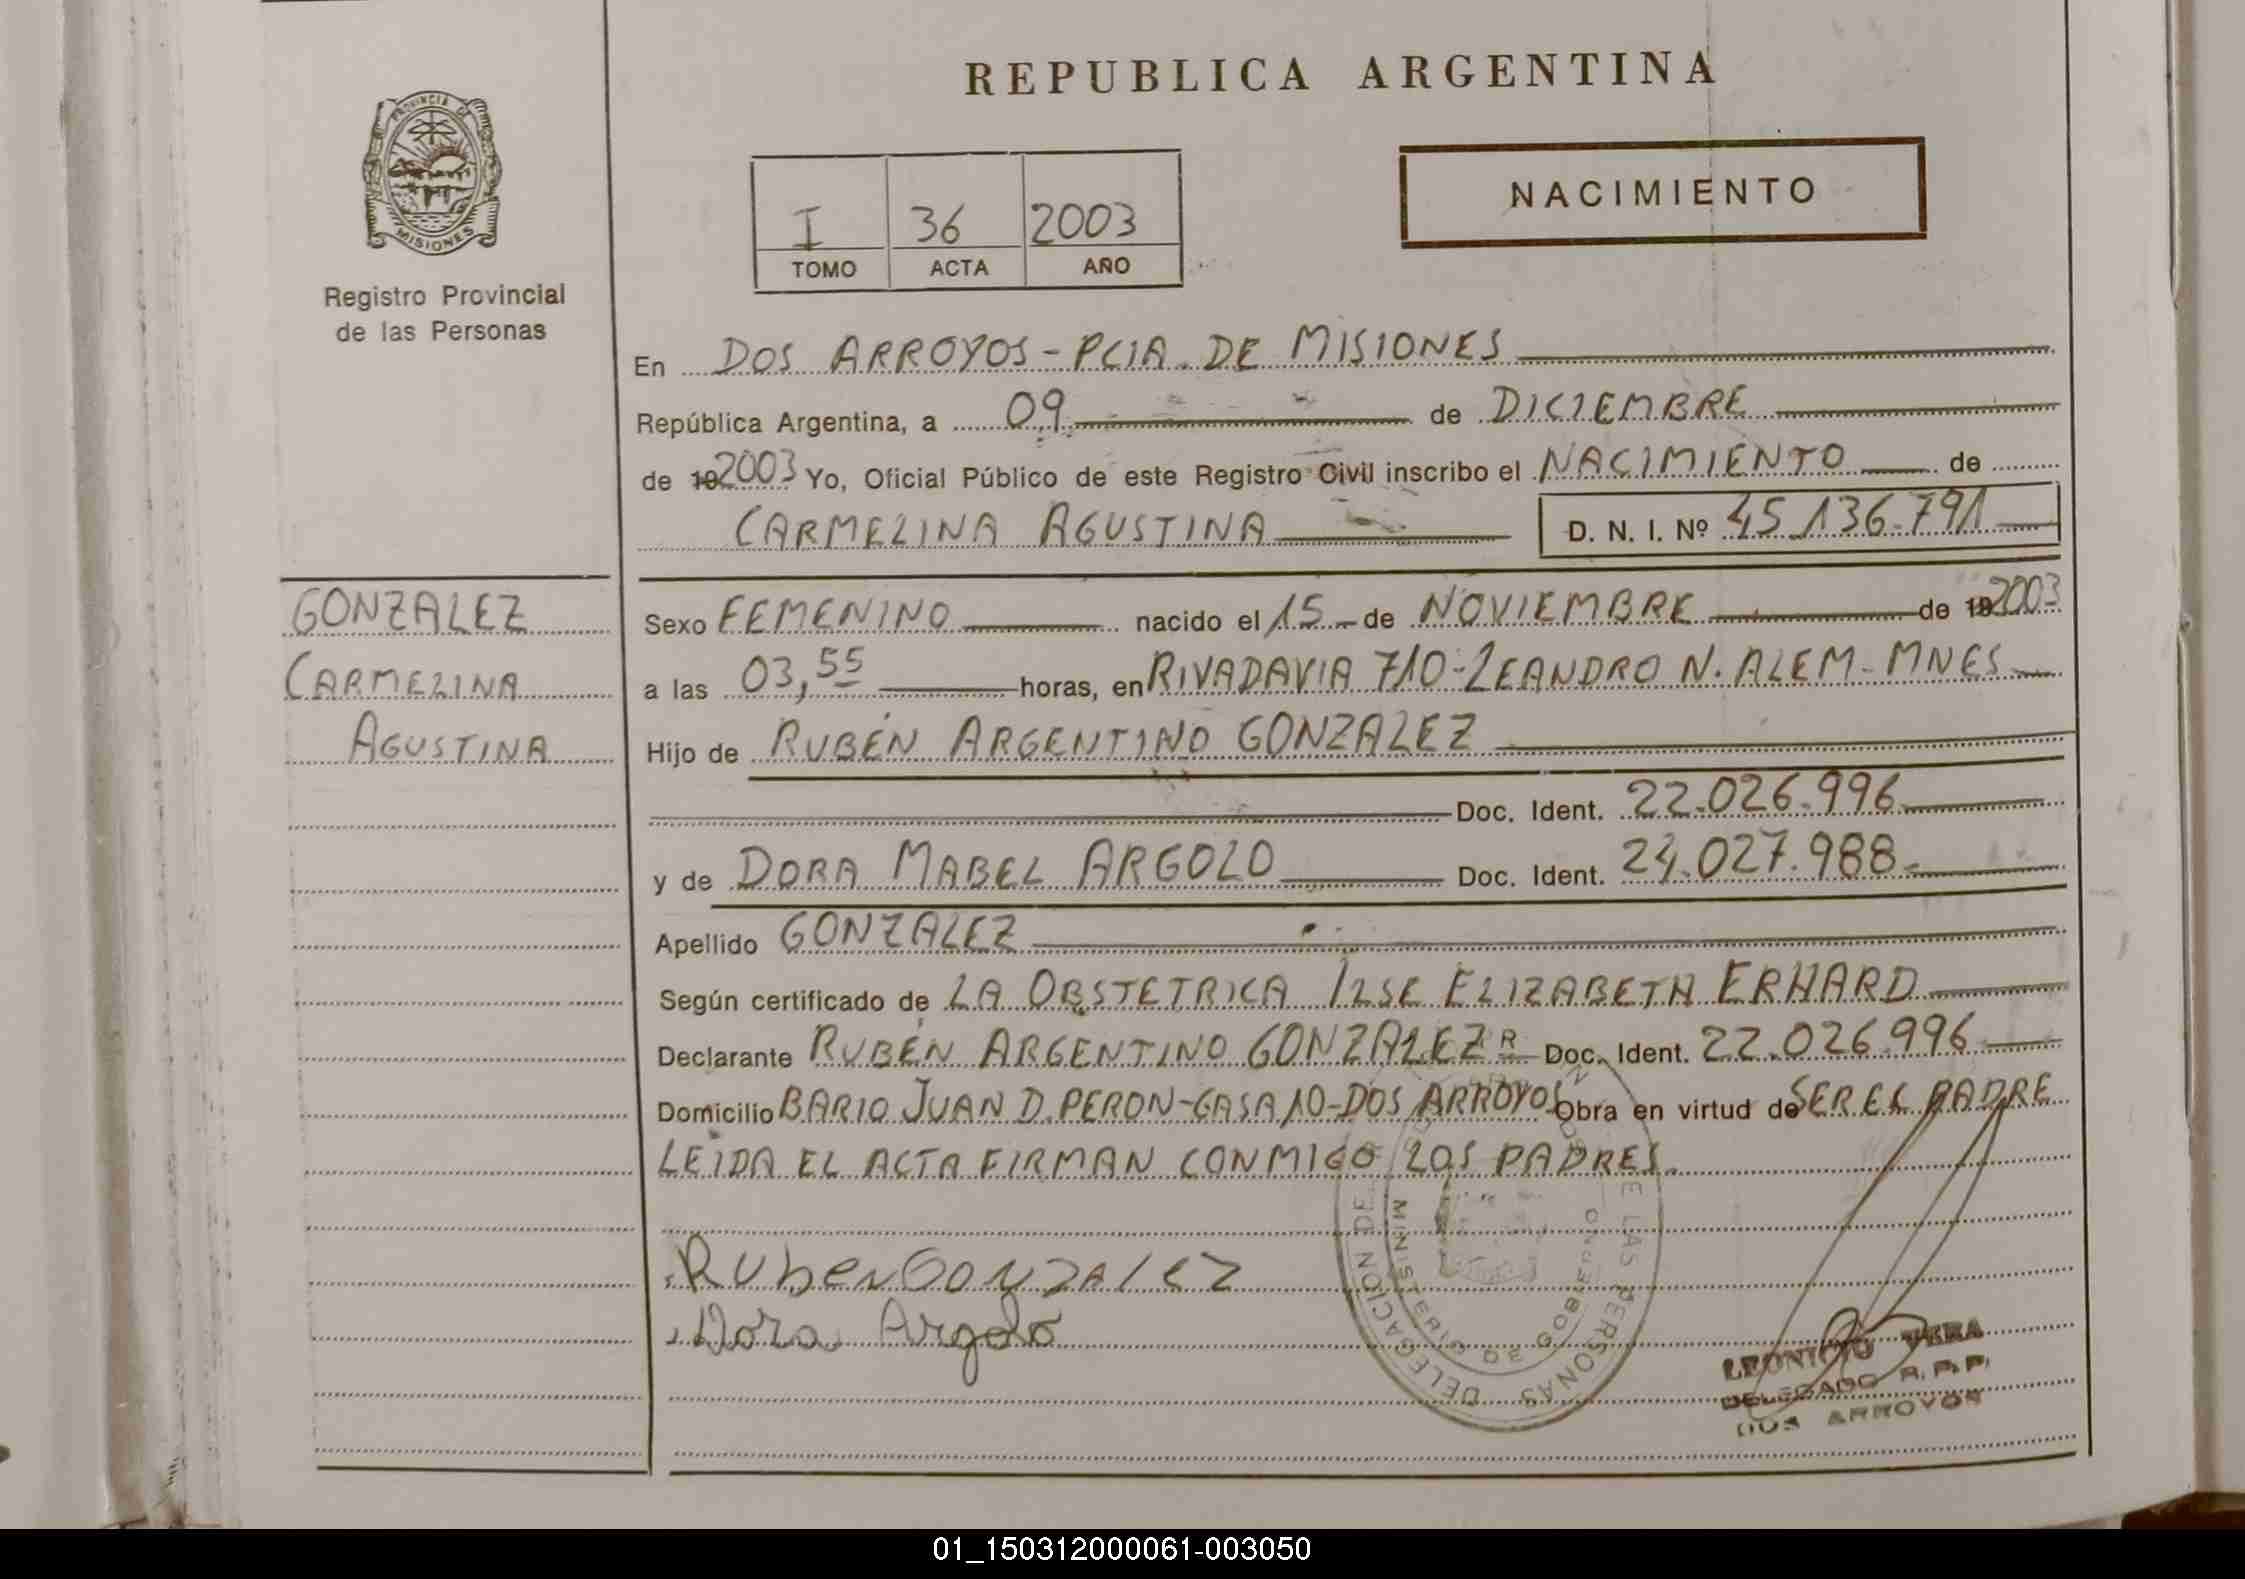 REPUBLICA ARGENTINA
PROVINCIA DE
MISIONES
Registro Provincial
de las Personas
I 36 2003
TOMO ACTA AÑO
NACIMIENTO
En DOS ARROYOS - PCIA. DE MISIONES
República Argentina, a 09 de DICIEMBRE
de 192003 Yo, Oficial Público de este Registro Civil inscribo el NACIMIENTO de
CARMELINA AGUSTINA D. N. I. Nº 45.136.791
GONZALEZ
CARMELINA
AGUSTINA
Sexo FEMENINO nacido el 15 de NOVIEMBRE de 192003
a las 03,55 horas, en RIVADAVIA 710-LEANDRO N. ALEM-MNES
Hijo de RUBÉN ARGENTINO GONZALEZ
Doc. Ident. 22.026.996
y de DORA MABEL ARGOLO Doc. Ident. 24.027.988
Apellido GONZALEZ
Según certificado de LA OBSTETRICA ILSE ELIZABETH ERHARD
Declarante RUBÉN ARGENTINO GONZALEZ R Doc. Ident. 22.026.996
Domicilio BARIO JUAN D. PERON-CASA 10-DOS ARROYOS Obra en virtud de SER EL PADRE
LEIDA EL ACTA FIRMAN CONMIGO LOS PADRES.
Ruben GONZALEZ
Dora Argolo
DELEGACION DE LAS PERSONAS
MINISTERIO DE GOBIERNO
DELEGADO R. P. P.
DOS ARROYOS
01_150312000061-003050